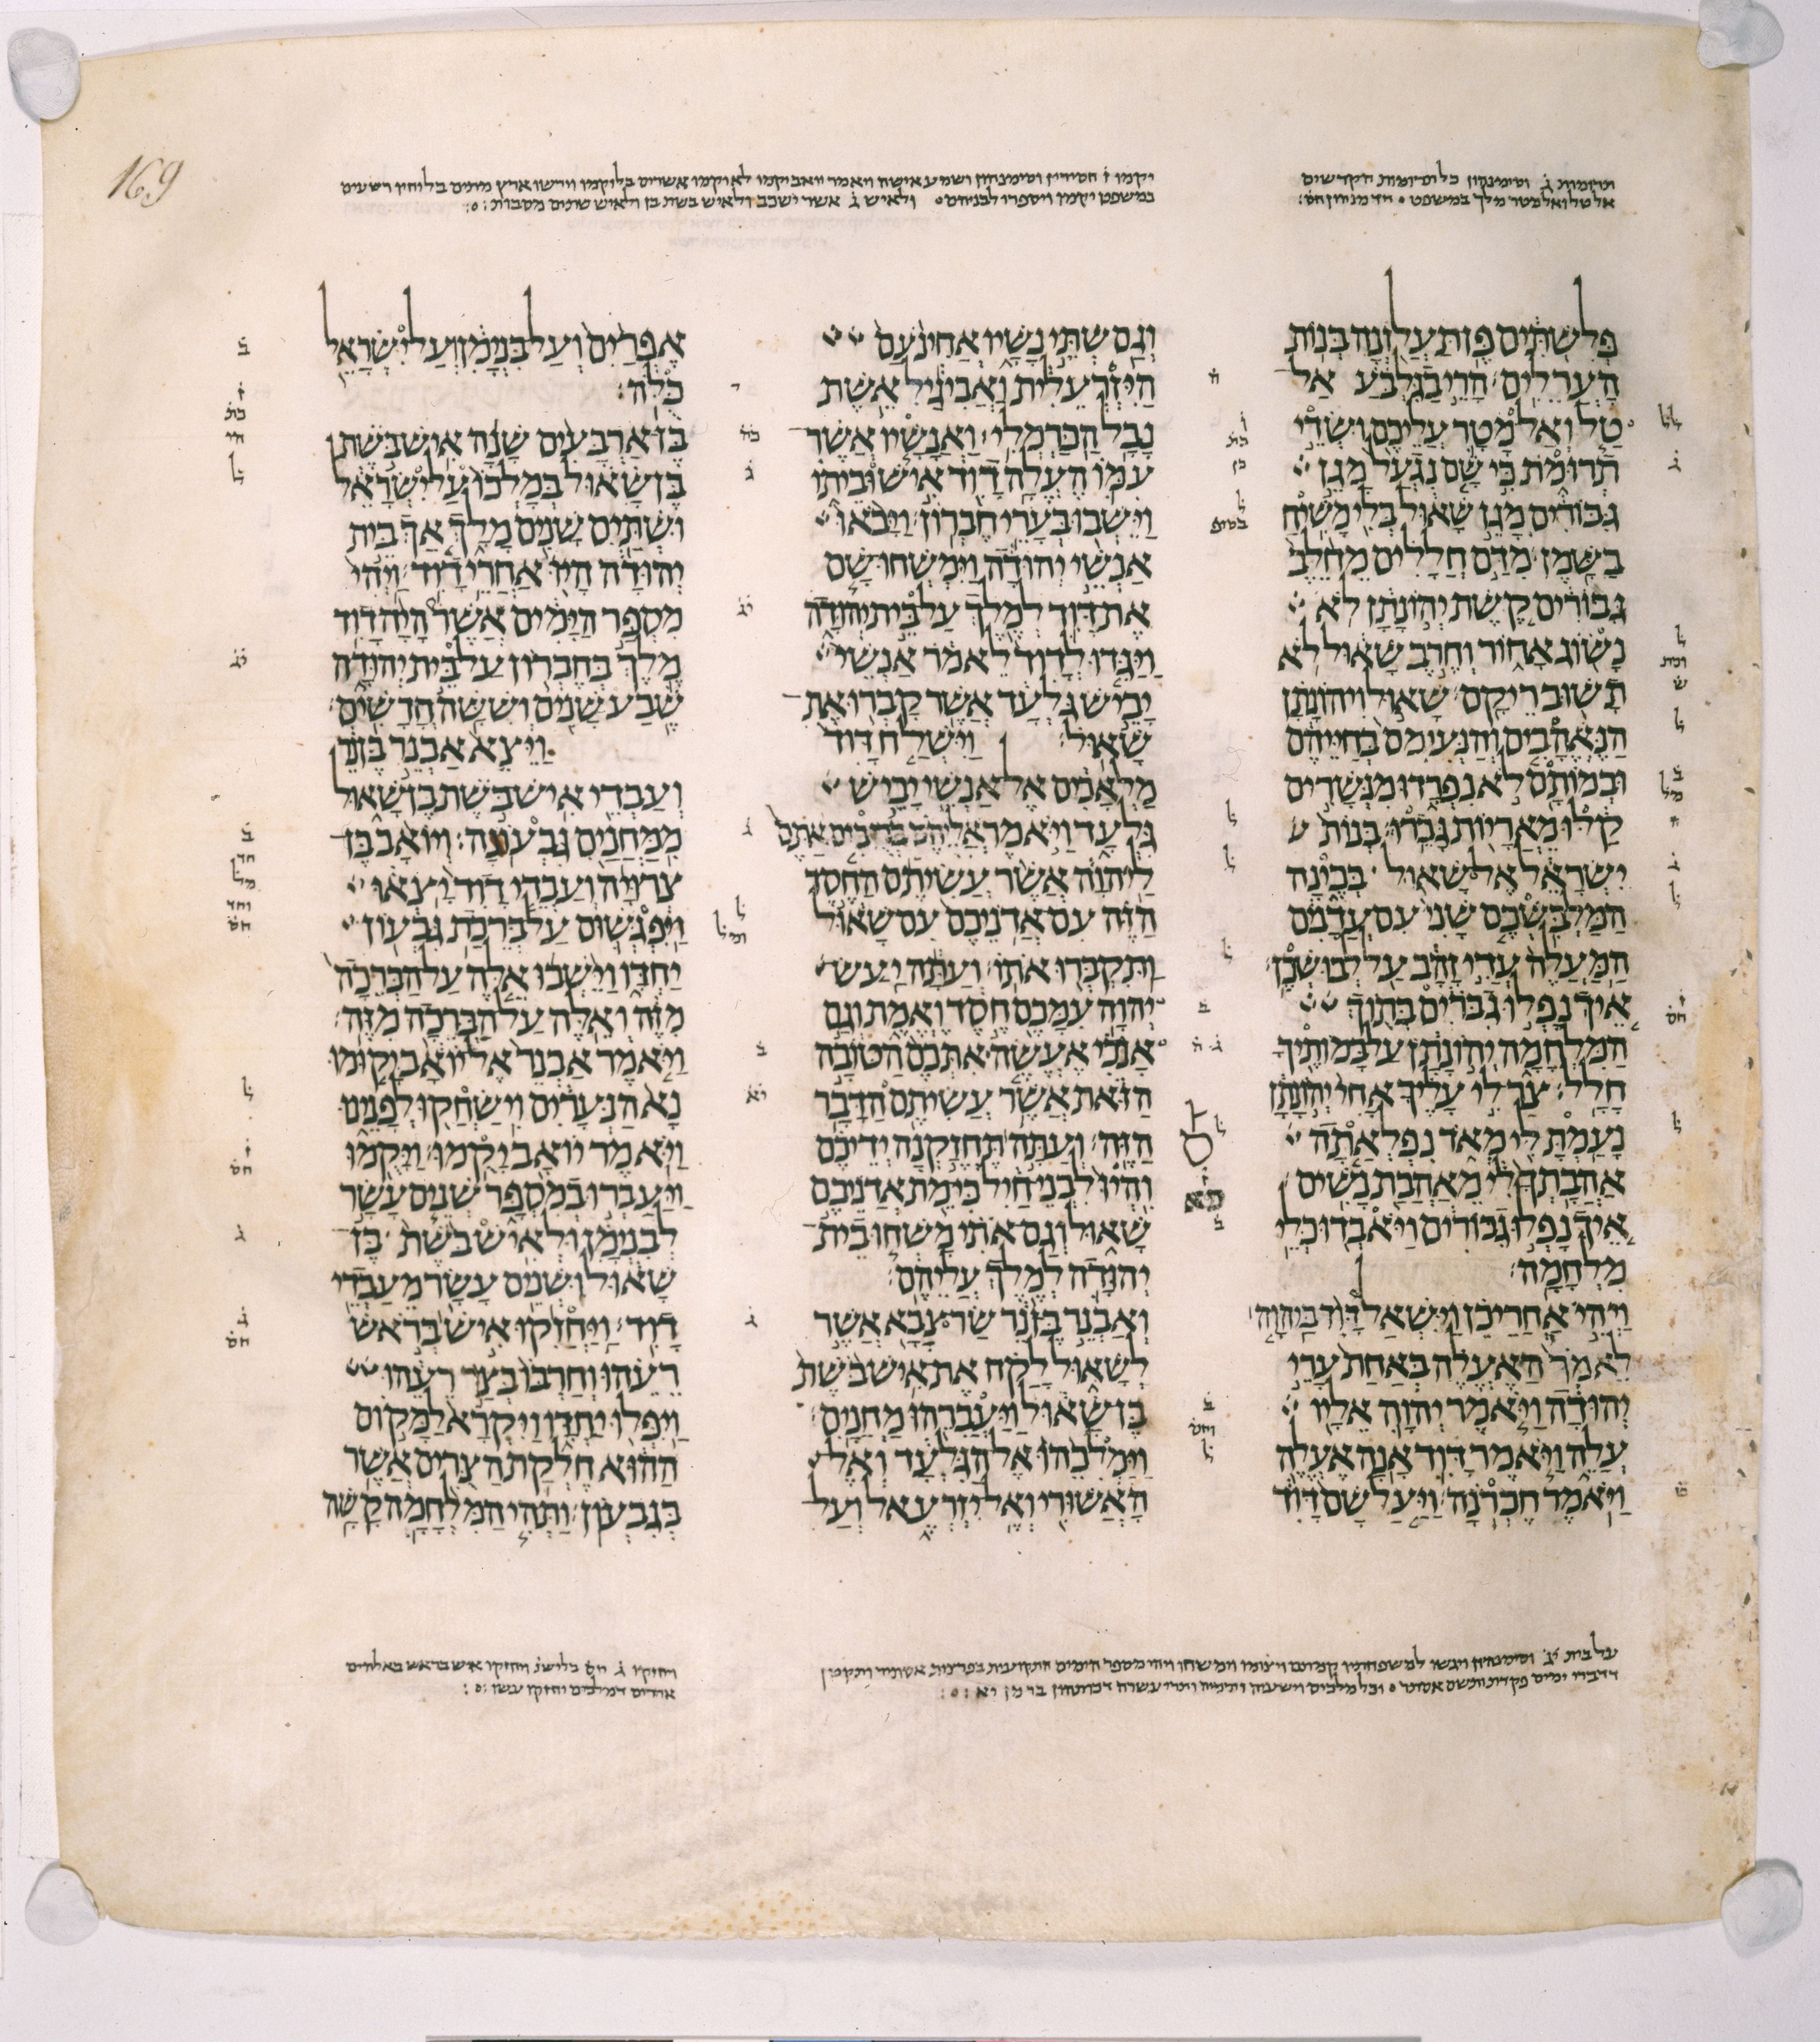 169
פְּלִשְׁתִּים פֶּן תַּעֲלֹזְנָה בְּנוֹת
הָעֲרֵלִים׃ הָרֵי בַגִּלְבֹּעַ אַל
טַל וְאַל מָטָר עֲלֵיכֶם וּשְׂדֵי
תְרוּמֹת כִּי שָׁם נִגְעַל מָגֵן
גִּבּוֹרִים מָגֵן שָׁאוּל בְּלִי מָשִׁיחַ
בַּשָּׁמֶן׃ מִדַּם חֲלָלִים מֵחֵלֶב
גִּבּוֹרִים קֶשֶׁת יְהוֹנָתָן לֹא
נָשׂוֹג אָחוֹר וְחֶרֶב שָׁאוּל לֹא
תָשׁוּב רֵיקָם׃ שָׁאוּל וִיהוֹנָתָן
הַנֶּאֱהָבִים וְהַנְּעִימִם בְּחַיֵּיהֶם
וּבְמוֹתָם לֹא נִפְרָדוּ מִנְּשָׁרִים
קַלּוּ מֵאֲרָיוֹת גָּבֵרוּ׃ בְּנוֹת
יִשְׂרָאֵל אֶל שָׁאוּל בְּכֶינָה
הַמַּלְבִּשְׁכֶם שָׁנִי עִם עֲדָנִים
הַמַּעֲלֶה עֲדִי זָהָב עַל לְבוּשְׁכֶן׃
אֵיךְ נָפְלוּ גִבֹּרִים בְּתוֹךְ
הַמִּלְחָמָה יְהוֹנָתָן עַל בָּמוֹתֶיךָ
חָלָל׃ צַר לִי עָלֶיךָ אָחִי יְהוֹנָתָן
נָעַמְתָּ לִּי מְאֹד נִפְלְאַתָה
אַהֲבָתְךָ לִי מֵאַהֲבַת נָשִׁים׃
אֵיךְ נָפְלוּ גִבּוֹרִים וַיֹּאבְדוּ כְּלֵי
מִלְחָמָה׃
וַיְהִי אַחֲרֵי כֵן וַיִּשְׁאַל דָּוִד בַּיהוָה
לֵאמֹר הַאֶעֱלֶה בְּאַחַת עָרֵי
יְהוּדָה וַיֹּאמֶר יְהוָה אֵלָיו
עֲלֵה וַיֹּאמֶר דָּוִד אָנָה אֶעֱלֶה
וַיֹּאמֶר חֶבְרֹנָה׃ וַיַּעַל שָׁם דָּוִד
וְגַם שְׁתֵּי נָשָׁיו אֲחִינֹעַם
הַיִּזְרְעֵלִית וַאֲבִיגַיִל אֵשֶׁת
נָבָל הַכַּרְמְלִי׃ וַאֲנָשָׁיו אֲשֶׁר
עִמּוֹ הֶעֱלָה דָוִד אִישׁ וּבֵיתוֹ
וַיֵּשְׁבוּ בְּעָרֵי חֶבְרוֹן׃ וַיָּבֹאוּ
אַנְשֵׁי יְהוּדָה וַיִּמְשְׁחוּ שָׁם
אֶת דָּוִד לְמֶלֶךְ עַל בֵּית יְהוּדָה
וַיַּגִּדוּ לְדָוִד לֵאמֹר אַנְשֵׁי
יָבֵישׁ גִּלְעָד אֲשֶׁר קָבְרוּ אֶת
שָׁאוּל׃ וַיִּשְׁלַח דָּוִד
מַלְאָכִים אֶל אַנְשֵׁי יָבֵישׁ
גִּלְעָד וַיֹּאמֶר אֲלֵיהֶם בְּרֻכִים אַתֶּם
לַיהוָה אֲשֶׁר עֲשִׂיתֶם הַחֶסֶד
הַזֶּה עִם אֲדֹנֵיכֶם עִם שָׁאוּל
וַתִּקְבְּרוּ אֹתוֹ׃ וְעַתָּה יַעַשׂ
יְהוָה עִמָּכֶם חֶסֶד וֶאֱמֶת וְגַם
אָנֹכִי אֶעֱשֶׂה אִתְּכֶם הַטּוֹבָה
הַזֹּאת אֲשֶׁר עֲשִׂיתֶם הַדָּבָר
הַזֶּה׃ וְעַתָּה תֶּחֱזַקְנָה יְדֵיכֶם
וִהְיוּ לִבְנֵי חַיִל כִּי מֵת אֲדֹנֵיכֶם
שָׁאוּל וְגַם אֹתִי מָשְׁחוּ בֵית
יְהוּדָה לְמֶלֶךְ עֲלֵיהֶם׃
וְאַבְנֵר בֶּן נֵר שַׂר צָבָא אֲשֶׁר
לְשָׁאוּל לָקַח אֶת אִישׁ בֹּשֶׁת
בֶּן שָׁאוּל וַיַּעֲבִרֵהוּ מַחֲנָיִם׃
וַיַּמְלִכֵהוּ אֶל הַגִּלְעָד וְאֶל
הָאֲשׁוּרִי וְאֶל יִזְרְעֶאל וְעַל
אֶפְרַיִם וְעַל בִּנְיָמִן וְעַל יִשְׂרָאֵל
כֻּלֹּה׃
בֶּן אַרְבָּעִים שָׁנָה אִישׁ בֹּשֶׁת
בֶּן שָׁאוּל בְּמָלְכוֹ עַל יִשְׂרָאֵל
וּשְׁתַּיִם שָׁנִים מָלָךְ אַךְ בֵּית
יְהוּדָה הָיוּ אַחֲרֵי דָוִד׃ וַיְהִי
מִסְפַּר הַיָּמִים אֲשֶׁר הָיָה דָוִד
מֶלֶךְ בְּחֶבְרוֹן עַל בֵּית יְהוּדָה
שֶׁבַע שָׁנִים וְשִׁשָּׁה חֳדָשִׁים׃
וַיֵּצֵא אַבְנֵר בֶּן נֵר
וְעַבְדֵי אִישׁ בֹּשֶׁת בֶּן שָׁאוּל
מִמַּחֲנַיִם גִּבְעוֹנָה׃ וְיוֹאָב בֶּן
צְרוּיָה וְעַבְדֵי דָוִד יָצְאוּ
וַיִּפְגְּשׁוּם עַל בְּרֵכַת גִּבְעוֹן
יַחְדָּו וַיֵּשְׁבוּ אֵלֶּה עַל הַבְּרֵכָה
מִזֶּה וְאֵלֶּה עַל הַבְּרֵכָה מִזֶּה׃
וַיֹּאמֶר אַבְנֵר אֶל יוֹאָב יָקוּמוּ
נָא הַנְּעָרִים וִישַׂחֲקוּ לְפָנֵינוּ
וַיֹּאמֶר יוֹאָב יָקֻמוּ׃ וַיָּקֻמוּ
וַיַּעַבְרוּ בְמִסְפָּר שְׁנֵים עָשָׂר
לְבִנְיָמִן וּלְאִישׁ בֹּשֶׁת בֶּן
שָׁאוּל וּשְׁנֵים עָשָׂר מֵעַבְדֵי
דָוִד׃ וַיַּחֲזִקוּ אִישׁ בְּרֹאשׁ
רֵעֵהוּ וְחַרְבּוֹ בְּצַד רֵעֵהוּ
וַיִּפְּלוּ יַחְדָּו וַיִּקְרָא לַמָּקוֹם
הַהוּא חֶלְקַת הַצֻּרִים אֲשֶׁר
בְּגִבְעוֹן׃ וַתְּהִי הַמִּלְחָמָה קָשָׁה